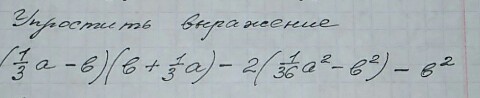 Упростить выражение
(1/3 a - в)(в + 1/3 a) - 2(1/36 a² - в²) - в²